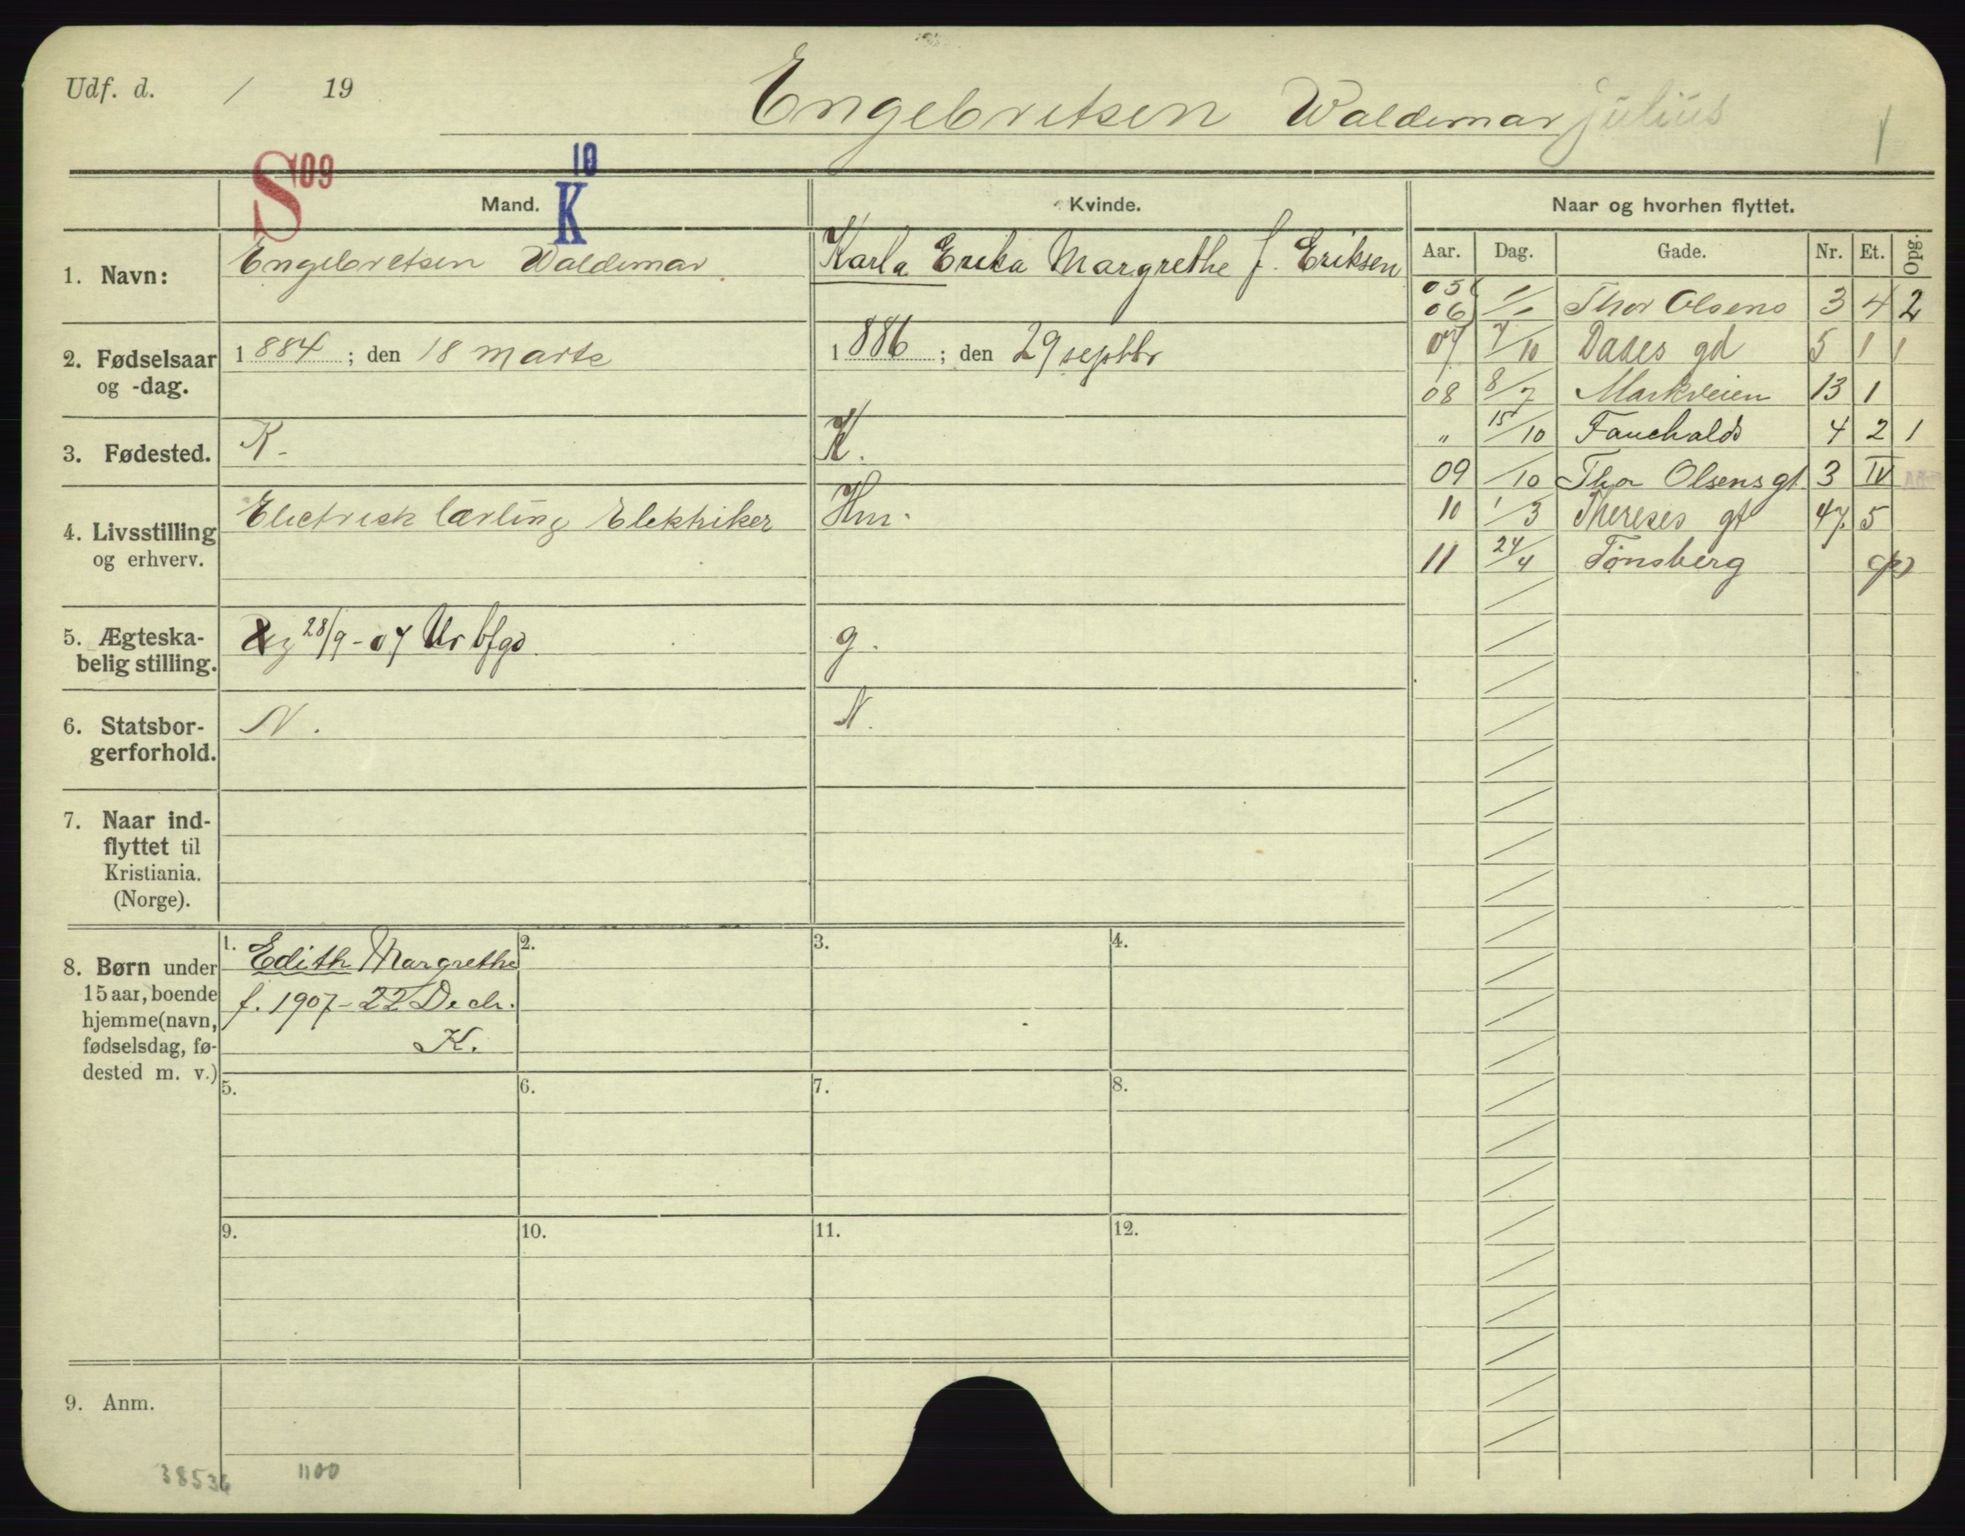 Udf. d. / 19
Engebretsen Waldemar julius
1
S 09
10
K
Mand.
Kvinde.
Naar og hvorhen flyttet.
Aar. Dag. Gade. Nr. Et. Opg.
1. Navn:
Engebretsen Waldemar
Karla Erika Margrethe f. Eriksen
2. Fødselsaar
og -dag.
1884; den 18 marts
1886; den 29 septbr
3. Fødested.
K.
K.
4. Livsstilling
og erhverv.
Electrisk lærling Elektriker
Hm.
5. Ægteska-
belig stilling.
g 28/9-07 Ur bfgd.
g.
6. Statsbor-
gerforhold.
N.
N.
7. Naar ind-
flyttet til
Kristiania.
(Norge).
8. Børn under
15 aar, boende
hjemme (navn,
fødselsdag, fø-
dested m. v.)
1. Edith Margrethe
f. 1907-22 Decb.
K.
2.
3.
4.
5.
6.
7.
8.
9.
10.
11.
12.
05
06 / Thor Olsens 3 4 2
07 7/10 Daaes gd 5 1 1
08 8/7 Markveien 13 1
" 15/10 Fauchalds 4 2 1
09 /10 Thor Olsens gt 3 IV
10 1/3 Thereses gt 47 5
11 24/4 Tønsberg
9. Anm.
38536 1100